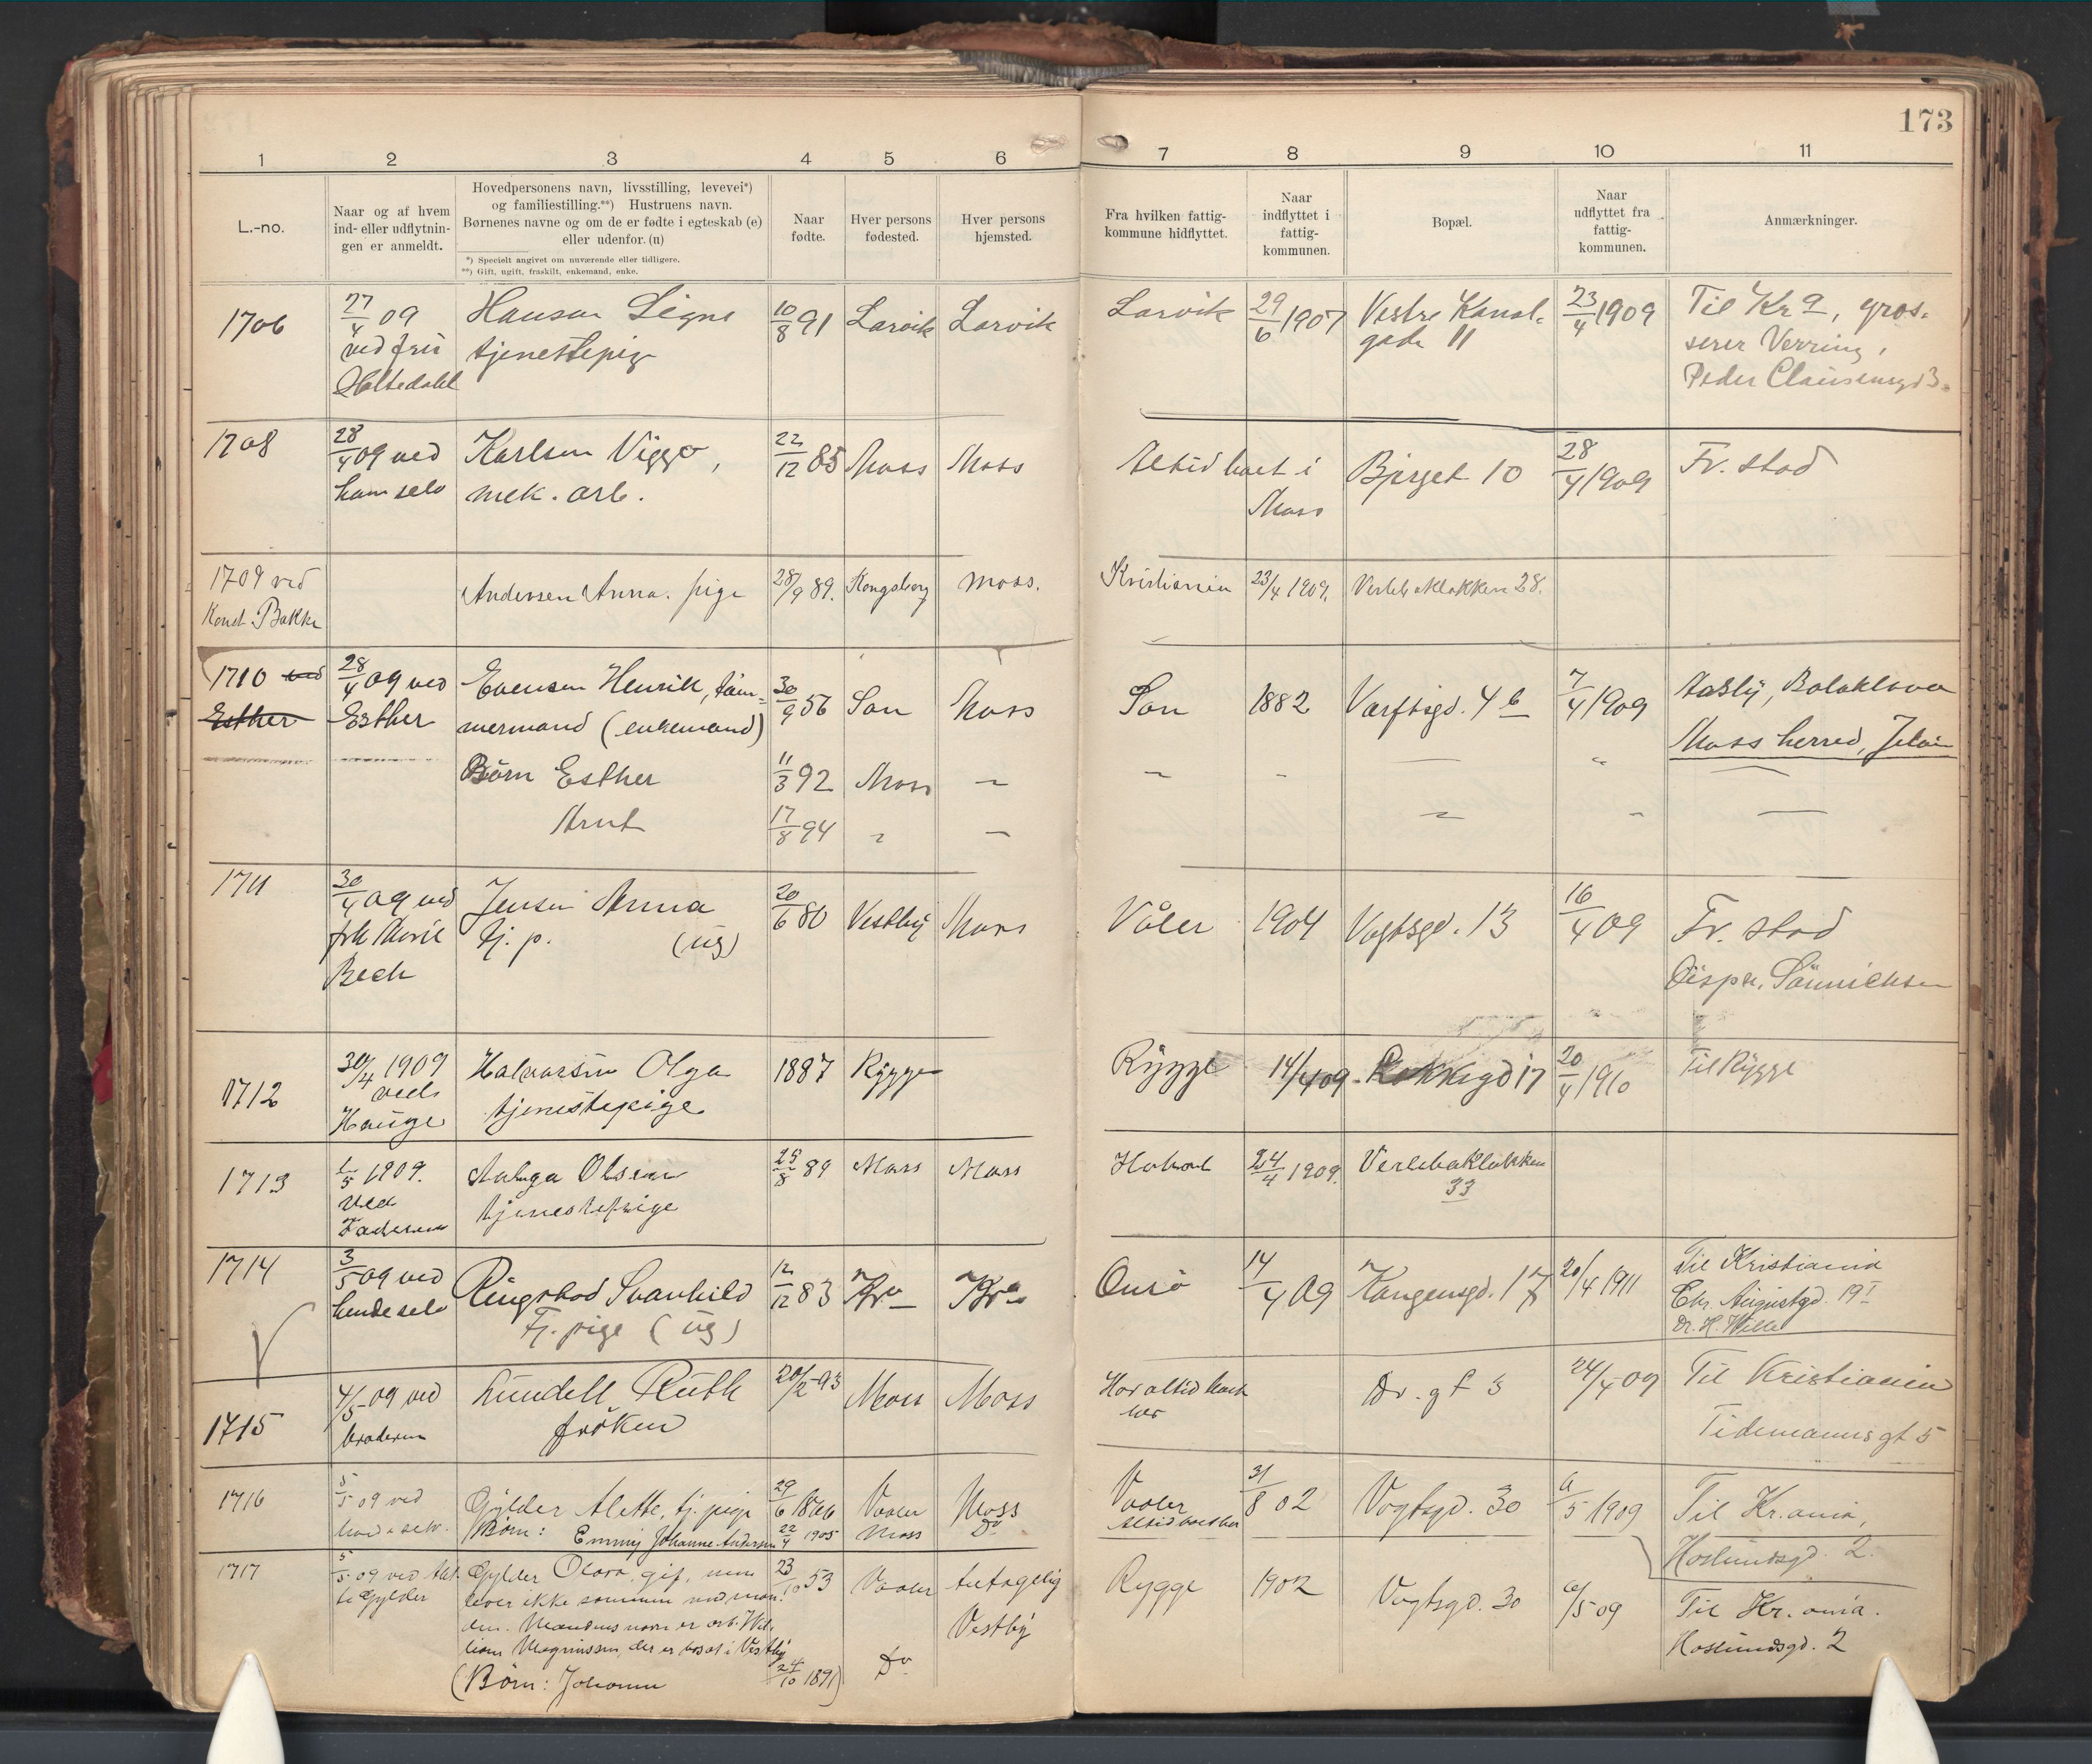 173
1 2 3 4 5 6 7 8 9 10 11
L.-no.
Naar og af hvem
ind- eller udflytnin-
gen er anmeldt.
Hovedpersonens navn, livsstilling, levevei*)
og familiestilling.**) Hustruens navn.
Børnenes navne og om de er fødte i egteskab (e)
eller udenfor. (u)
*) Specielt angivet om nuværende eller tidligere.
**) Gift, ugift, fraskilt, enkemand, enke.
Naar
fødte.
Hver persons
fødested.
Hver persons
hjemsted.
Fra hvilken fattig-
kommune hidflyttet.
Naar
indflyttet i
fattig-
kommunen.
Bopæl.
Naar
udflyttet fra
fattig-
kommunen.
Anmærkninger.
1706 27/4 09 Hansen Signe 10/8 91 Larvik Larvik Larvik 29/6 1907 Vestre Kanal- 23/4 1909 Til Kra, gros-
ved frü tjenestepige gade 11 serer Verring,
Holtedahl Peder Clausensgd 3.
1708 28/4 09 ved Karlsen Viggo, 22/12 85 Moss Moss Altid boet i Bjerget 10 28/4 1909 Fr. stad
ham selv mek. arb. Moss
1709 ved Andersen Anna. pige 28/9 89. Kongsberg Moss. Kristiania 23/4 1909. Verlebakløkken 28.
Konst. Bakke
1710 ved 28/4 09 ved Evensen Henrik, töm- 30/9 56 Son Moss Son 1882 Varftsgd. 4 b 7/4 1909 Aasly, Balaklava
Esther Esther mermand (enkemand) Moss herred, Jeløen
Börn Esther 11/3 92 Moss — — - — "
Arnt 17/8 94 " — " " —
1711 30/4 09 ved Jensen Anna 20/6 80 Vestby Moss Våler 1904 Vogtsgd. 13 16/4 09 Fr. stad
frk Marie tj. p. (ug) Disp. Sönnichsen
Bech
1712 30/4 1909 Halvorsen Olga 1887 Rygge Rygge 14/4 09 Rokkegd 17 20/4 1910 Til Rygge
ved tjenestepige
Hauge
1713 1/5 1909. Aslaga Olsen 25/8 89 Moss Moss Hobøl 24/4 1909. Verlebakløkken
ved tjenestepige 33
Faderen
1714 3/5 09 ved Ringstad Svanhild 12/12 83 Kra Kra Onsö 14/4 09 Kongensgd. 17 20/4 1911 Til Kristiania
hende selv Tj. pige (ug) Chr. Augustgd. 19 I
Dr. H. Wille
1715 4/5 09 ved Lundell Ruth 20/2 93 Moss Moss Har altid boet Dr. gt 3 24/4 09 Til Kristiania
broderen fröken her Tidemannsgt 5
1716 5/5 09 ved Gylder Alette, tj. pige 29/6 1866 Vaaler Moss Vaaler 31/8 02 Vogtsgd. 30 6/5 1909 Til Kr.ania,
hende selv. Börn: Emmy Johanne Andersen 22/4 1905 Moss Do Altid boet her Haslumdsgd. 2.
1717 5/5 09 ved Alet- Gylder Olava, gift, men 23/10 53 Vaaler antagelig Rygge 1902 Vogtsgd. 30 6/5 09 Til Kr.ania.
te Gylder lever ikke sammen med man- Vestby Haslumdsgd. 2
den. Mandens navn er arb. Wil-
liam Magnussen, der er bosat i Vestby
(Börn: Johanne 24/10 1891) Do